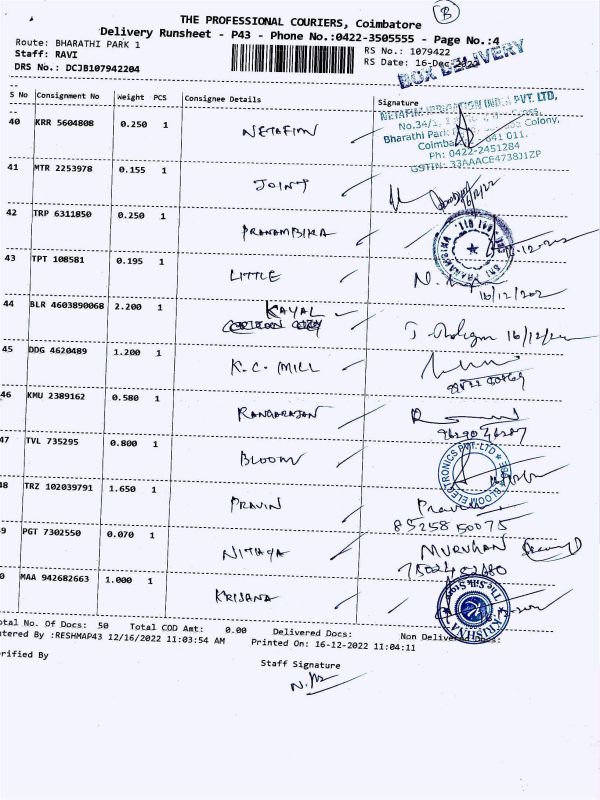 B
THE PROFESSIONAL COURIERS, Coimbatore
Delivery Runsheet - P43 - Phone No.:0422-3505555 - Page No.:4
Route: BHARATHI PARK 1
RS No.: 1079422
Staff: RAVI
RS Date: 16-Dec-2022
DRS No.: DCJB107942204
BOX DELIVERY
S No Consignment No Weight PCS Consignee Details Signature
NETAFIM IRRIGATION PVT. LTD,
No.34/1,
Bharathi Park Colony,
641 011.
Ph: 0422-2451284
GSTIN: 33AAACE4738J1ZP
40 KRR 5604808 0.250 1 NETAFIM
41 MTR 2253978 0.155 1 JOINT
42 TRP 6311850 0.250 1 PRANAMBIKA
43 TPT 108581 0.195 1 LITTLE
16/12/202
44 BLR 4603890068 2.200 1 KAYAL
16/12/
45 DDG 4620489 1.200 1 K.C. MILL
46 KMU 2389162 0.580 1 RANGARAJAN
47 TVL 735295 0.800 1 BLOOM
BLOOM ELECTRONICS PVT. LTD
48 TRZ 102039791 1.650 1 PRAVIN Pravin
85258 50075
9 PGT 7302550 0.070 1 NITHYA MURUHAN
0 MAA 942682663 1.000 1 KRISHNA
KRISHNA The Silk Story
otal No. Of Docs: 50 Total COD Amt: 0.00 Delivered Docs: Non Delivered Docs:
ntered By :RESHMAP43 12/16/2022 11:03:54 AM Printed On: 16-12-2022 11:04:11
erified By
Staff Signature